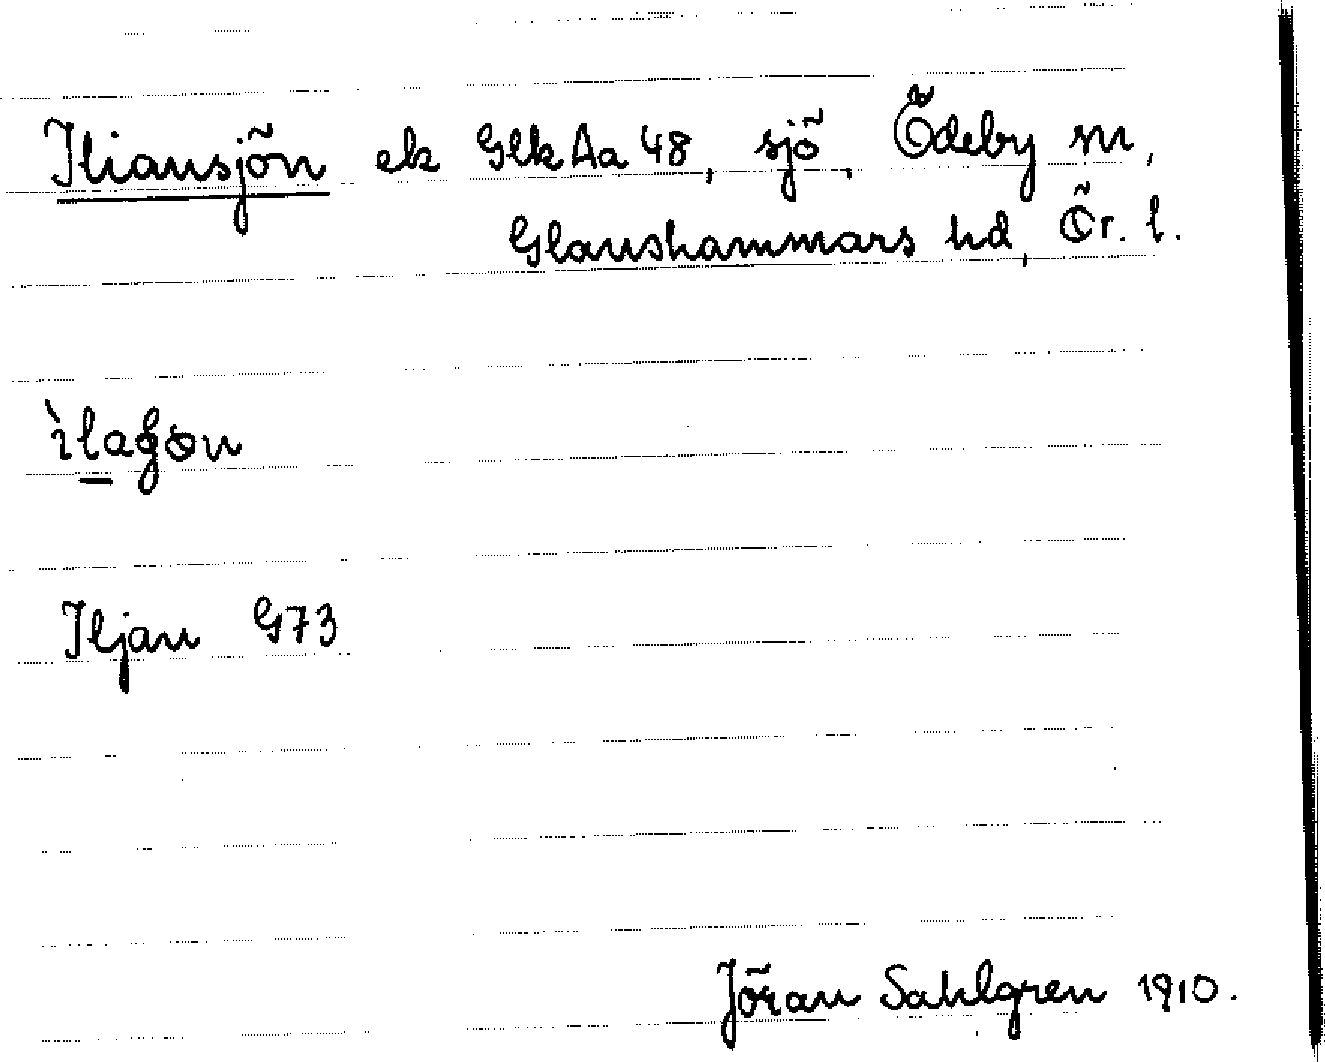 Iliansjön ek Glk Aa 48, sjö, Ödeby sn,
Glanshammars hd, Ör. l.
Iljan G73
Jöran Sahlgren 1910.